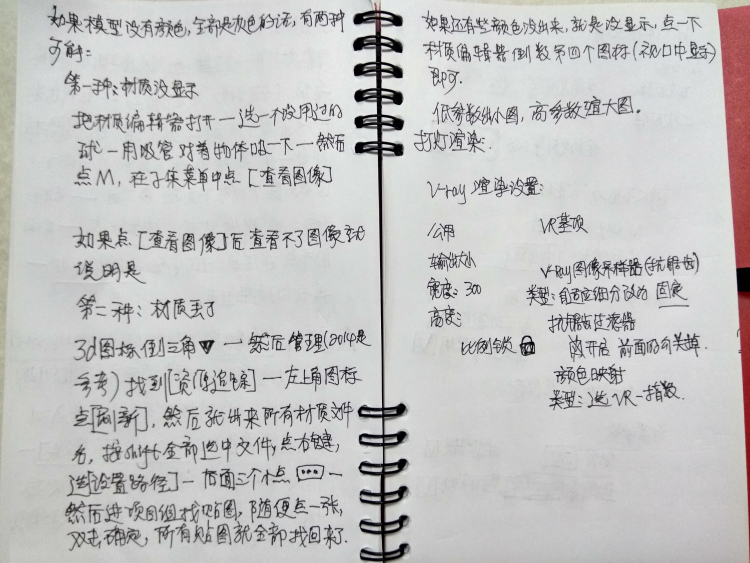 如果模型没有颜色,全部是灰色的话,有两种
可能:
第一种:材质没显示
把材质编辑器打开一选一个没用过的
球一用吸管对着物体吸一下一然后
点M,在子菜单中点[查看图像]
如果点[查看图像]后查看不了图像就
说明是
第二种:材质丢了
3d图标倒三角▼ 一然后管理(2014是
参考)找到[资源追踪]一左上角图标
点[刷新],然后就出来所有材质文件
名,按shift全部选中文件,点右键,
选[设置路径]一后面三个小点[...]一
然后进项目组找贴图,随便点一张,
双击确定,所有贴图就全部找回来了.
如果还有些颜色没出来,就是没显示,点一下
材质编辑器倒数第四个图标(视口中显示)
即可.
低参数出小图,高参数渲大图。
打灯渲染:
V-ray 渲染设置:
公用 VR基项
输出大小 V-Ray图像采样器(抗锯齿)
宽度:300 类型:自适应细分改为 固定
高度: 抗锯齿过滤器
比例锁 开启 前面的勾关掉.
颜色映射
类型:选VR一指数.